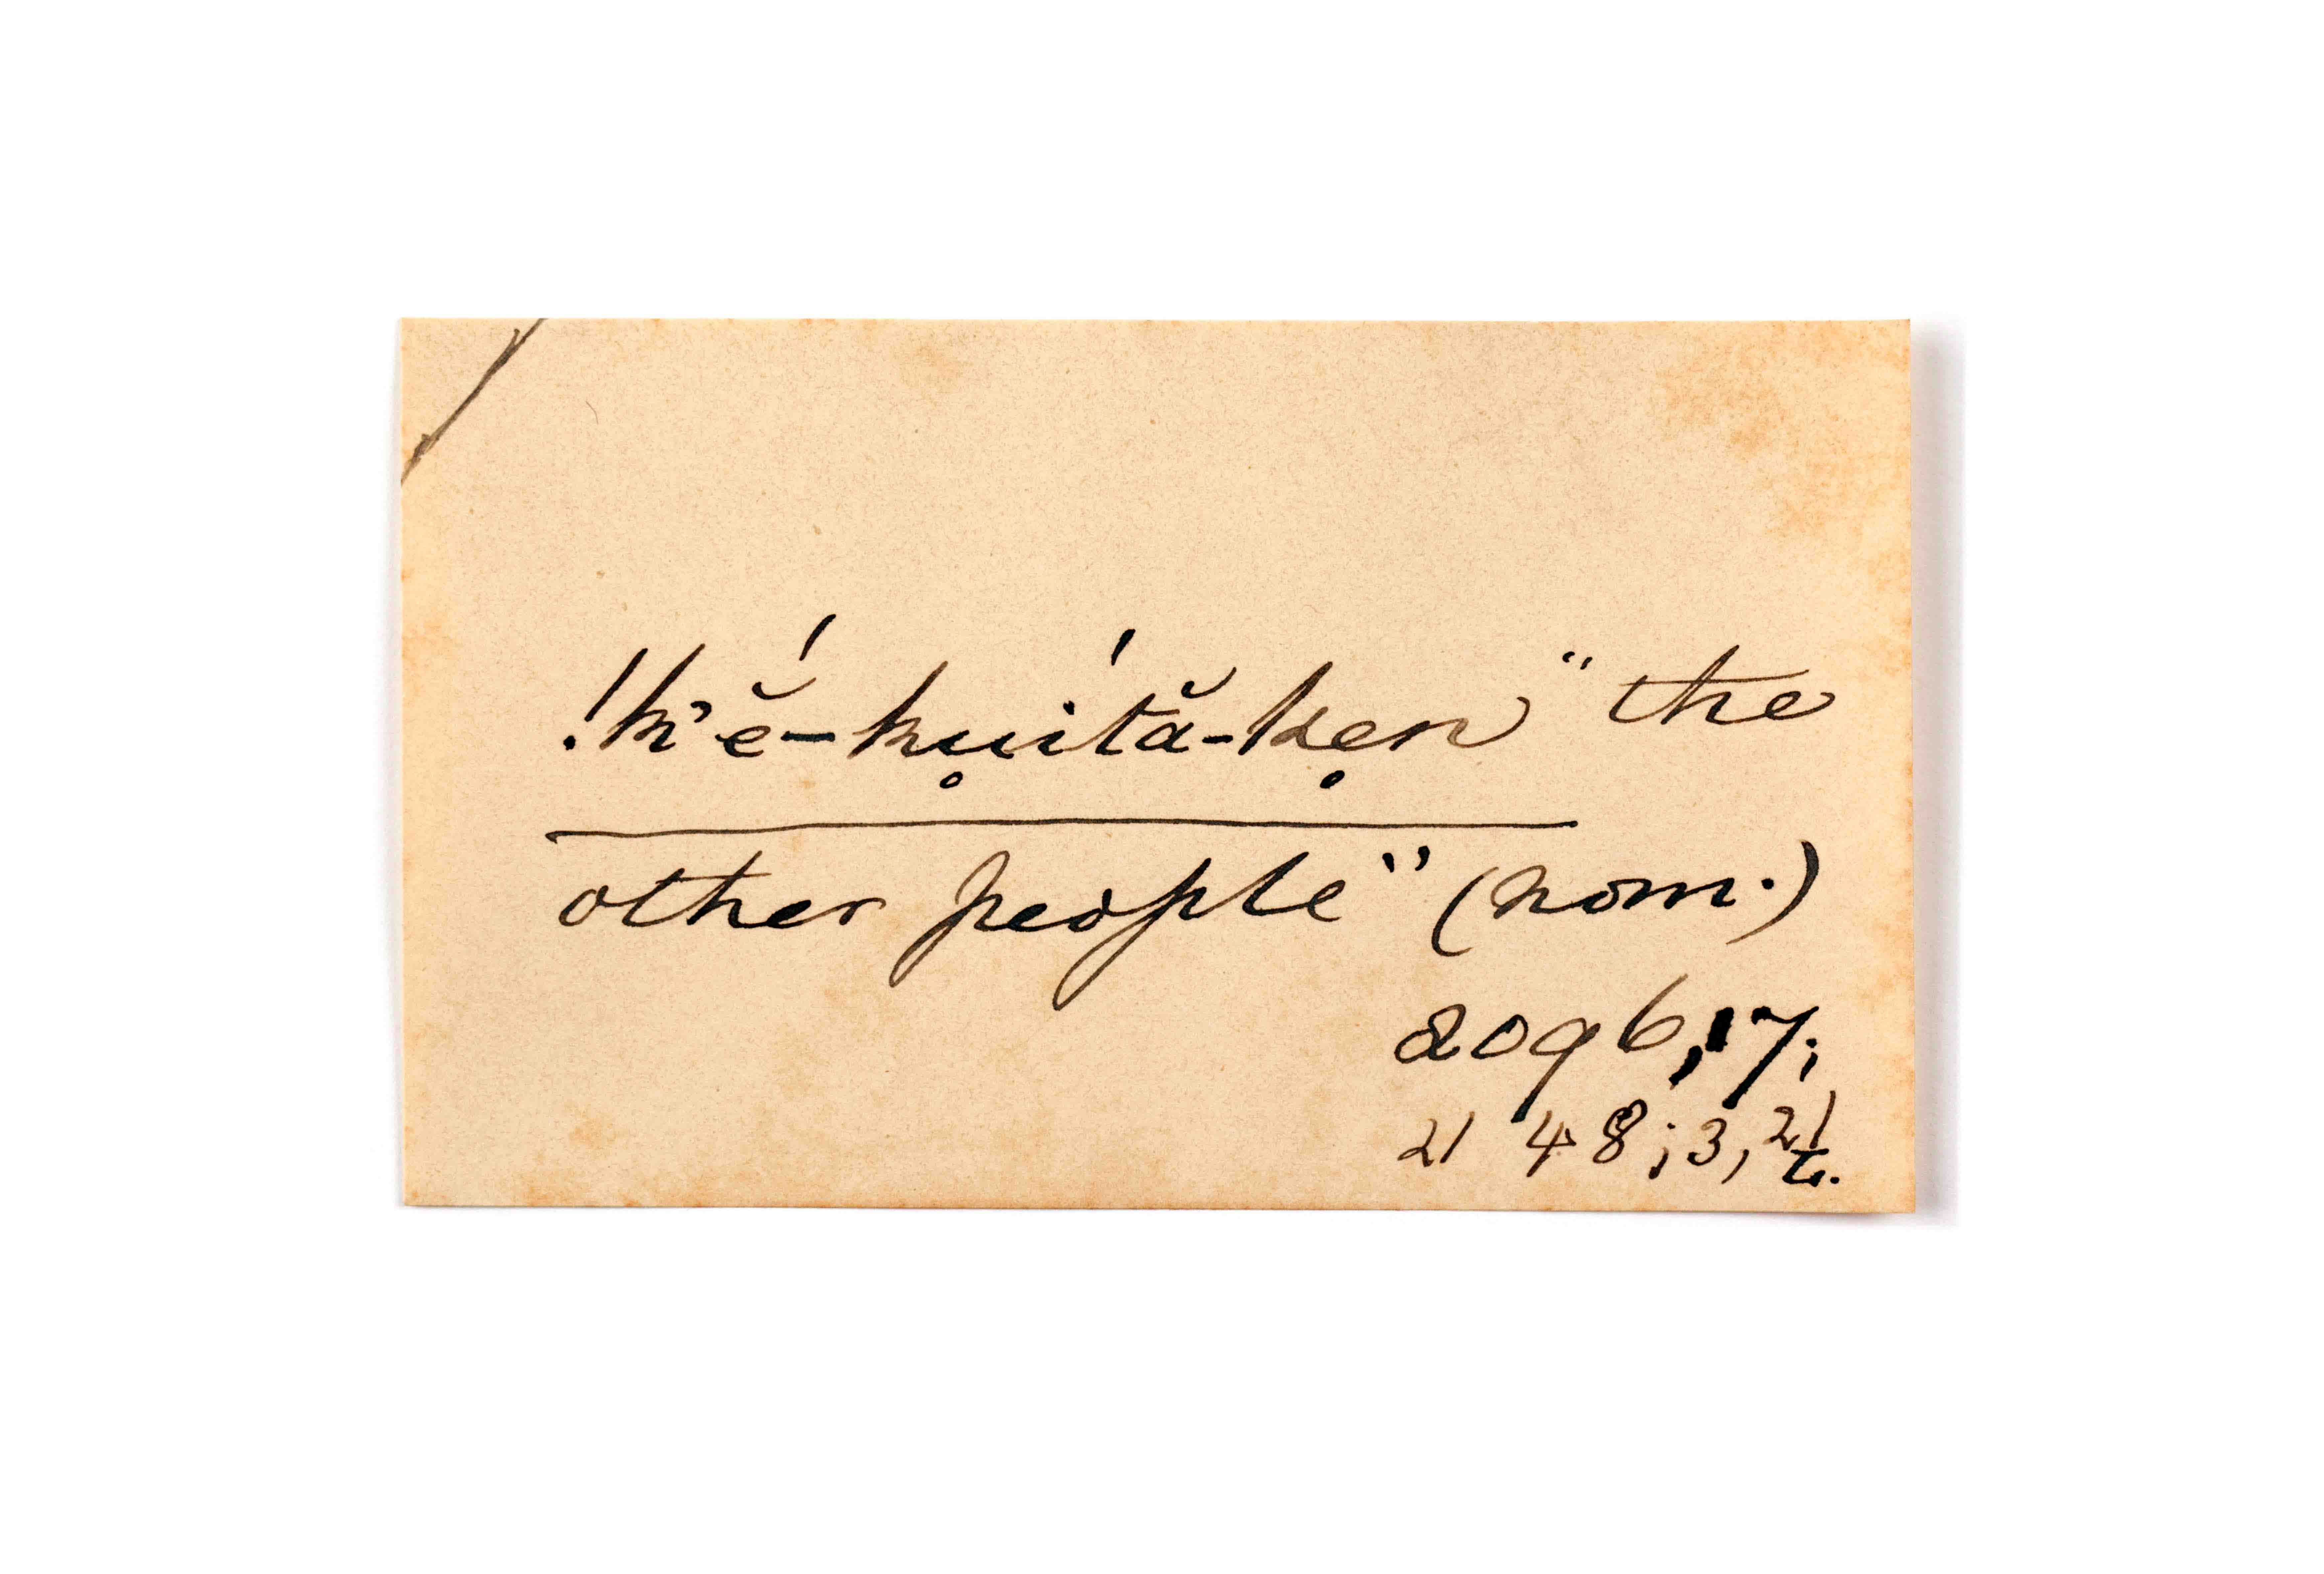 !k’ĕ́-ku̥itắ-kẹn "the
other people" (nom.)
2096,17;
2148; 3, 21